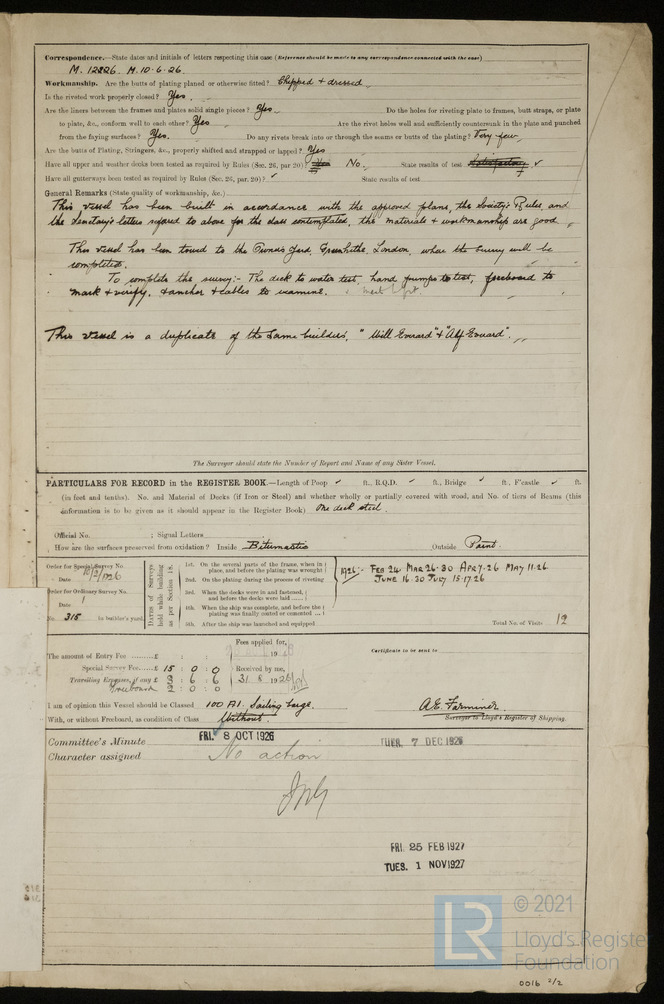 Correspondence.—State dates and initials of letters respecting this case (Reference should be made to any correspondence connected with the case)
M. 12226. M. 10·6·26.
Workmanship. Are the butts of plating planed or otherwise fitted? Chipped & dressed
Is the riveted work properly closed? Yes.
Are the liners between the frames and plates solid single pieces? Yes Do the holes for riveting plate to frames, butt straps, or plate
to plate, &c., conform well to each other? Yes Are the rivet holes well and sufficiently countersunk in the plate and punched
from the faying surfaces? Yes. Do any rivets break into or through the seams or butts of the plating? Very few
Are the butts of Plating, Stringers, &c., properly shifted and strapped or lapped? Yes
Have all upper and weather decks been tested as required by Rules (Sec. 26, par 20)? Yes No. State results of test Satisfactory ✓
Have all gutterways been tested as required by Rules (Sec. 26, par 20)? ✓ State results of test
General Remarks (State quality of workmanship, &c.)
This vessel has been built in accordance with the approved plans, the Society's Rules, and
the Secretary's letters refered to above for the class contemplated, the materials & workmanship are good
This vessel has been towed to the Owner's Yard, Greenhithe, London, where the survey will be
completed.
To complete the survey:- The deck to water test, hand pumps to test, freeboard to
mark & verify, & anchor & cables to examine.
This vessel is a duplicate of the same builders, "Will Everard" & "Alf Everard".
The Surveyor should state the Number of Report and Name of any Sister Vessel.
PARTICULARS FOR RECORD in the REGISTER BOOK.—Length of Poop ✓ ft., R.Q.D. ✓ ft., Bridge ✓ ft., F'castle ✓ ft.
(in feet and tenths). No. and Material of Decks (if Iron or Steel) and whether wholly or partially covered with wood, and No. of tiers of Beams (this
information is to be given as it should appear in the Register Book) One deck steel.
Official No. ; Signal Letters
How are the surfaces preserved from oxidation? Inside Bitumastic Outside Paint.
Order for Special Survey No.
Date 10/2/1926
Order for Ordinary Survey No.
Date
No. 315 in builder's yard.
DATES of Surveys held while building as per Section 18.
1st. On the several parts of the frame, when in place, and before the plating was wrought
2nd. On the plating during the process of riveting
3rd. When the decks were in and fastened, and before the decks were laid
4th. When the ship was complete, and before the plating was finally coated or cemented
5th. After the ship was launched and equipped
1926:- FEB 24 MAR 26·30 APR 7·26 MAY 11·26
JUNE 16·30 JULY 15·17·26
Total No. of Visits 12
The amount of Entry Fee £ : :
Special Survey Fee £ 15 : 0 : 0
Travelling Expenses, if any £ 3 : 6 : 6
Freeboard 2 : 0 : 0
Fees applied for,
Received by me,
31 8 1926
Certificate to be sent to
I am of opinion this Vessel should be Classed 100 A1. Sailing barge.
With, or without Freeboard, as condition of Class Without.
A.E. Farminer.
Surveyor to Lloyd's Register of Shipping.
Committee's Minute
FRI. 8 OCT 1926
TUER. 7 DEC 1926
Character assigned No action
FRI. 25 FEB 1927
TUES. 1 NOV 1927
LR
© 2021
Lloyd's Register
Foundation
0016 2/2